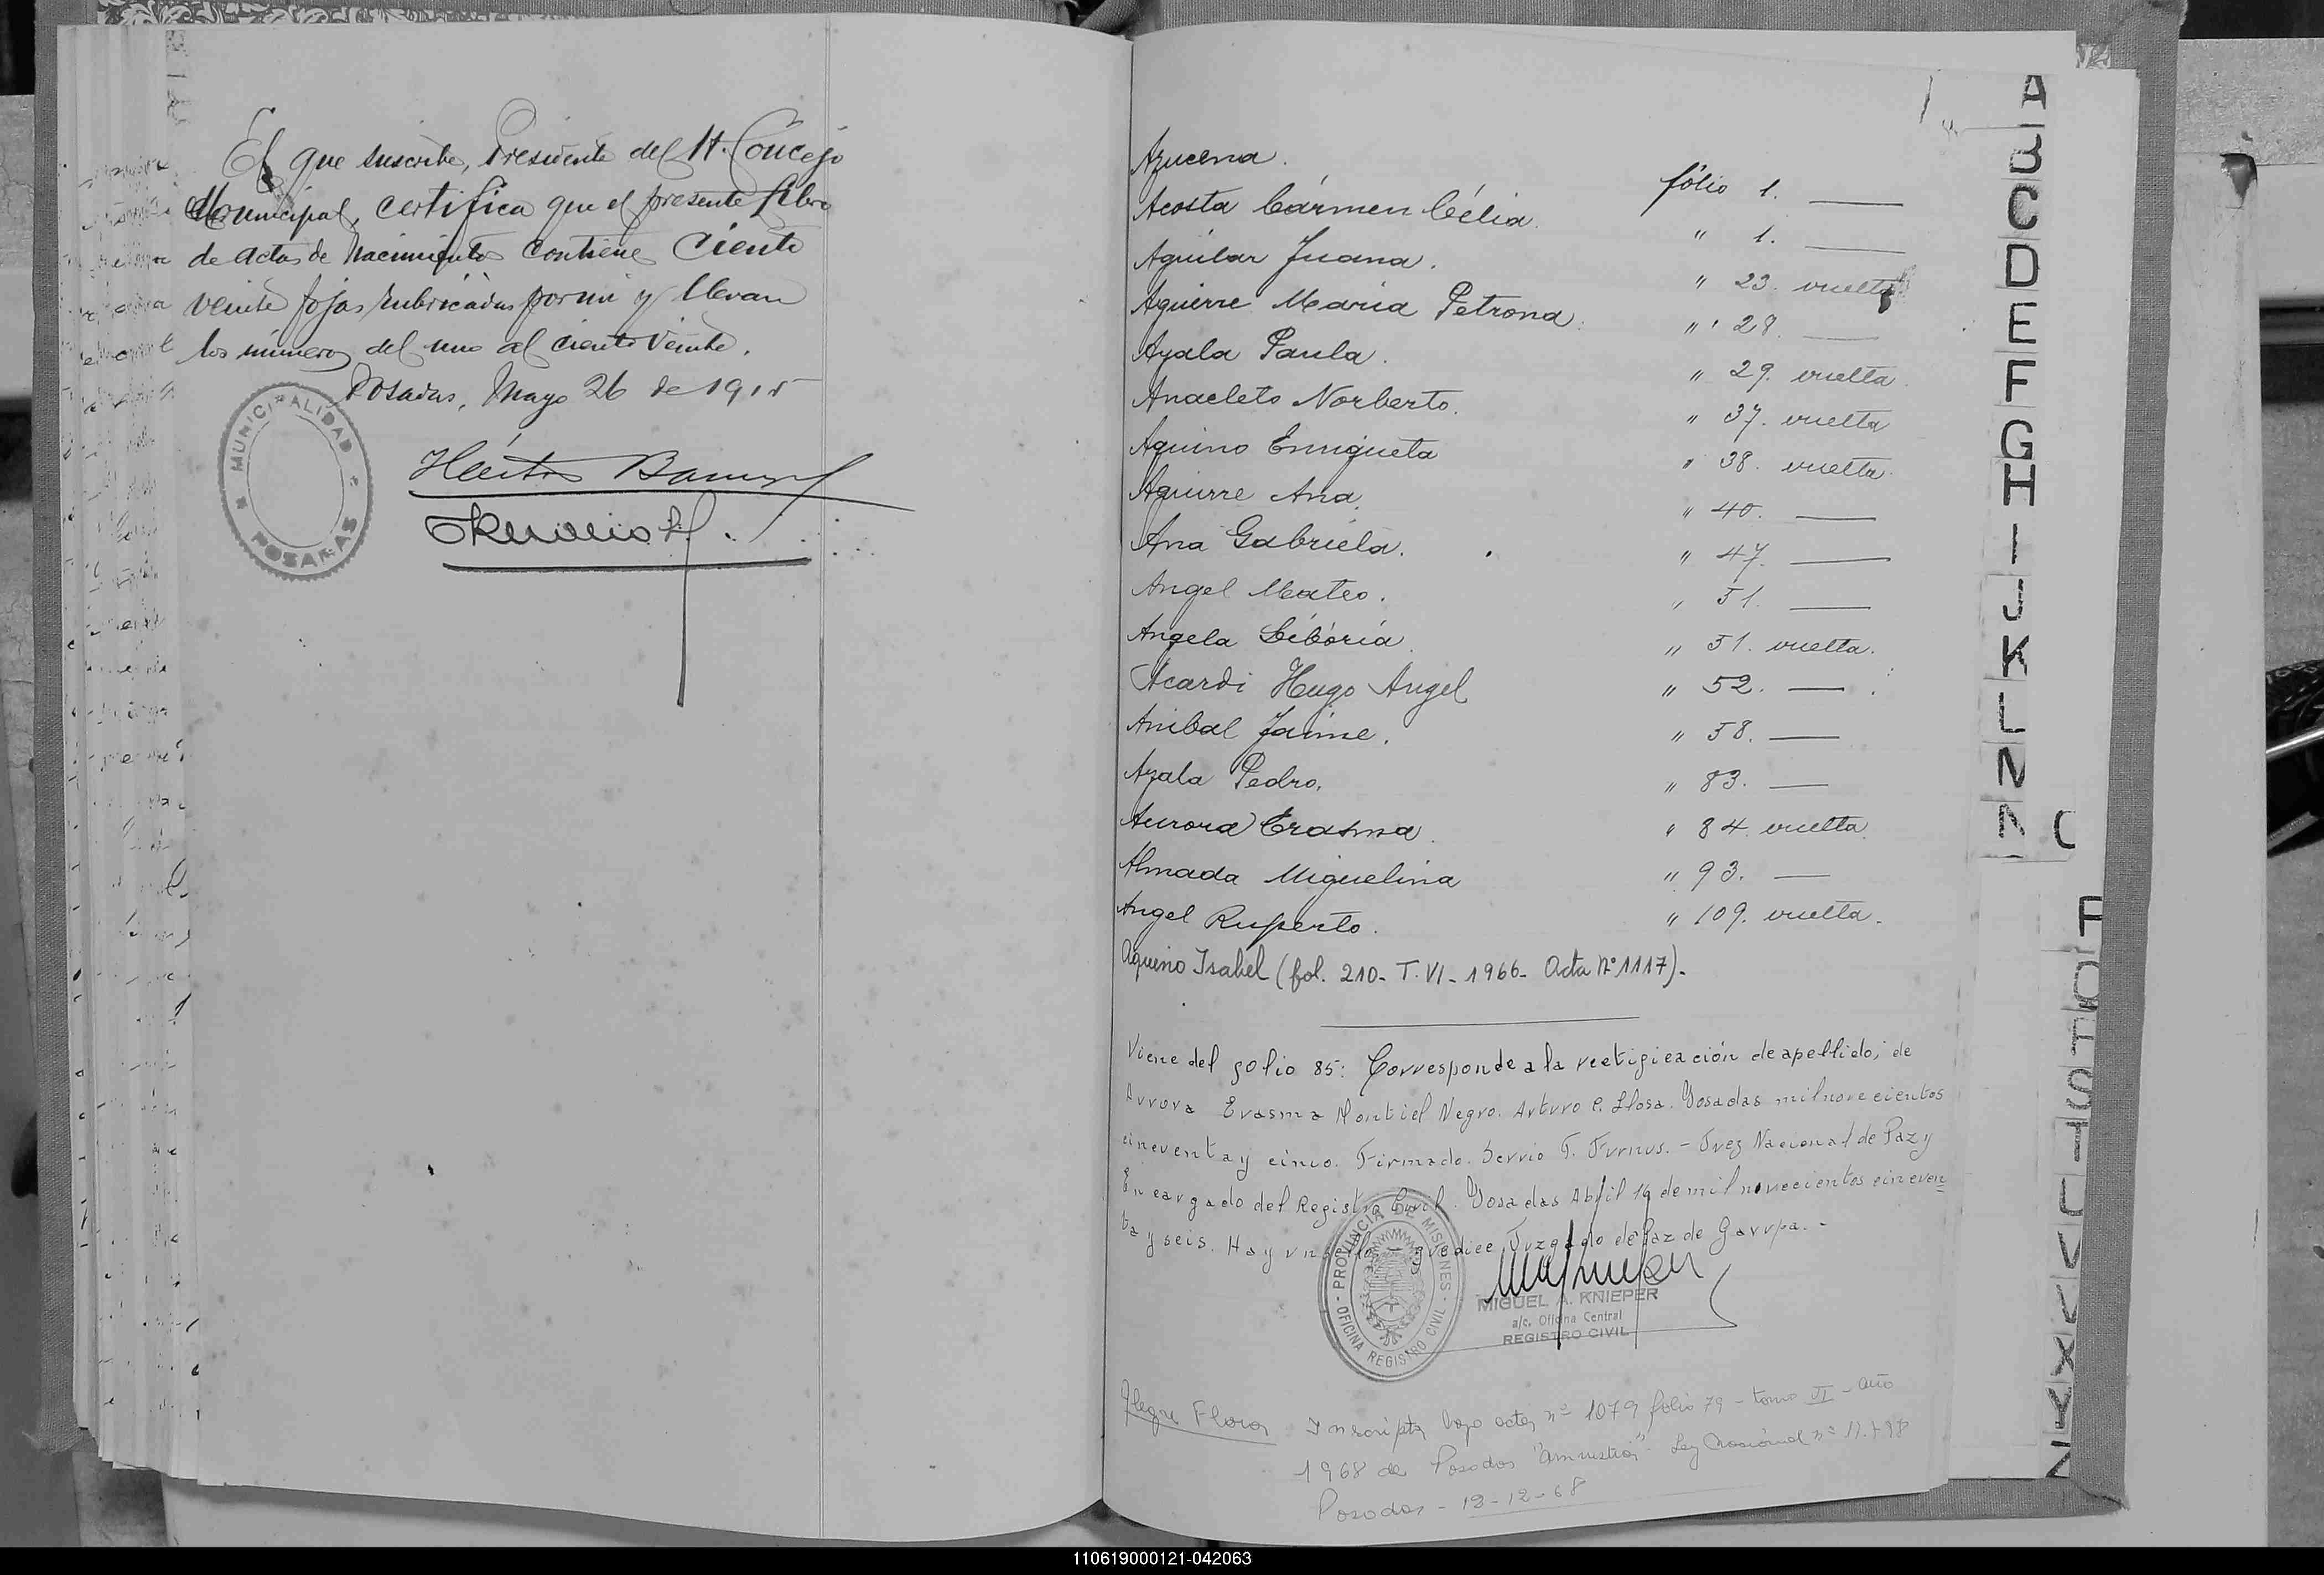 El que suscribe, Presidente del H. Concejo
Municipal, certifica que el presente libro
de actas de Nacimientos contiene Ciento
veinte fojas rubricadas por mi y llevan
los números del uno al ciento veinte.
Posadas, Mayo 26 de 1915
MUNICIPALIDAD
POSADAS
A
B
C
D
E
F
G
H
I
J
K
L
N
N
Azucena. fólio 1. —
Acosta Cármen Célia. " 1. —
Aguilar Juana. " 23. vuelta
Aguirre Maria Petrona. " 28. —
Ayala Paula. " 29. vuelta.
Anacleto Norberto. " 37. vuelta
Aquino Enriqueta " 38. vuelta.
Aguirre Ana. " 40. —
Ana Gabriela. " 47. —
Angel Mateo. " 51. —
Angela Libória. " 51. vuelta.
Acardi Hugo Angel " 52. —
Anibal Jaime. " 58. —
Ayala Pedro. " 83. —
Aurora Erasma. " 84. vuelta.
Almada Miguelina " 93. —
Angel Ruperto. " 109. vuelta.
Aquino Isabel (fol. 210- T. VI- 1966- Acta Nº 1117).-
Viene del folio 85: Corresponde a la rectificación de apellido, de
Aurora Erasma Montiel Negro. Arturo C. Llosa. Posadas mil novecientos
cincuenta y cinco. Firmado. Servio T. Furnus. - Juez Nacional de Paz y
Encargado del Registro Civil. Posadas Abril 19 de mil novecientos cincuen
ta y seis. Hay un sello que dice Juzgado de Paz de Garupa. -
PROVINCIA DE MISIONES
OFICINA REGISTRO CIVIL
MIGUEL A. KNIEPER
a/c. Oficina Central
REGISTRO CIVIL
Alegre Flora Inscripta bajo acta nº 1079 folio 79 - tomo VI - año
1968 de Posadas "amnistia" Ley Nacional nº
Posadas - 12-12-68
110619000121-042063